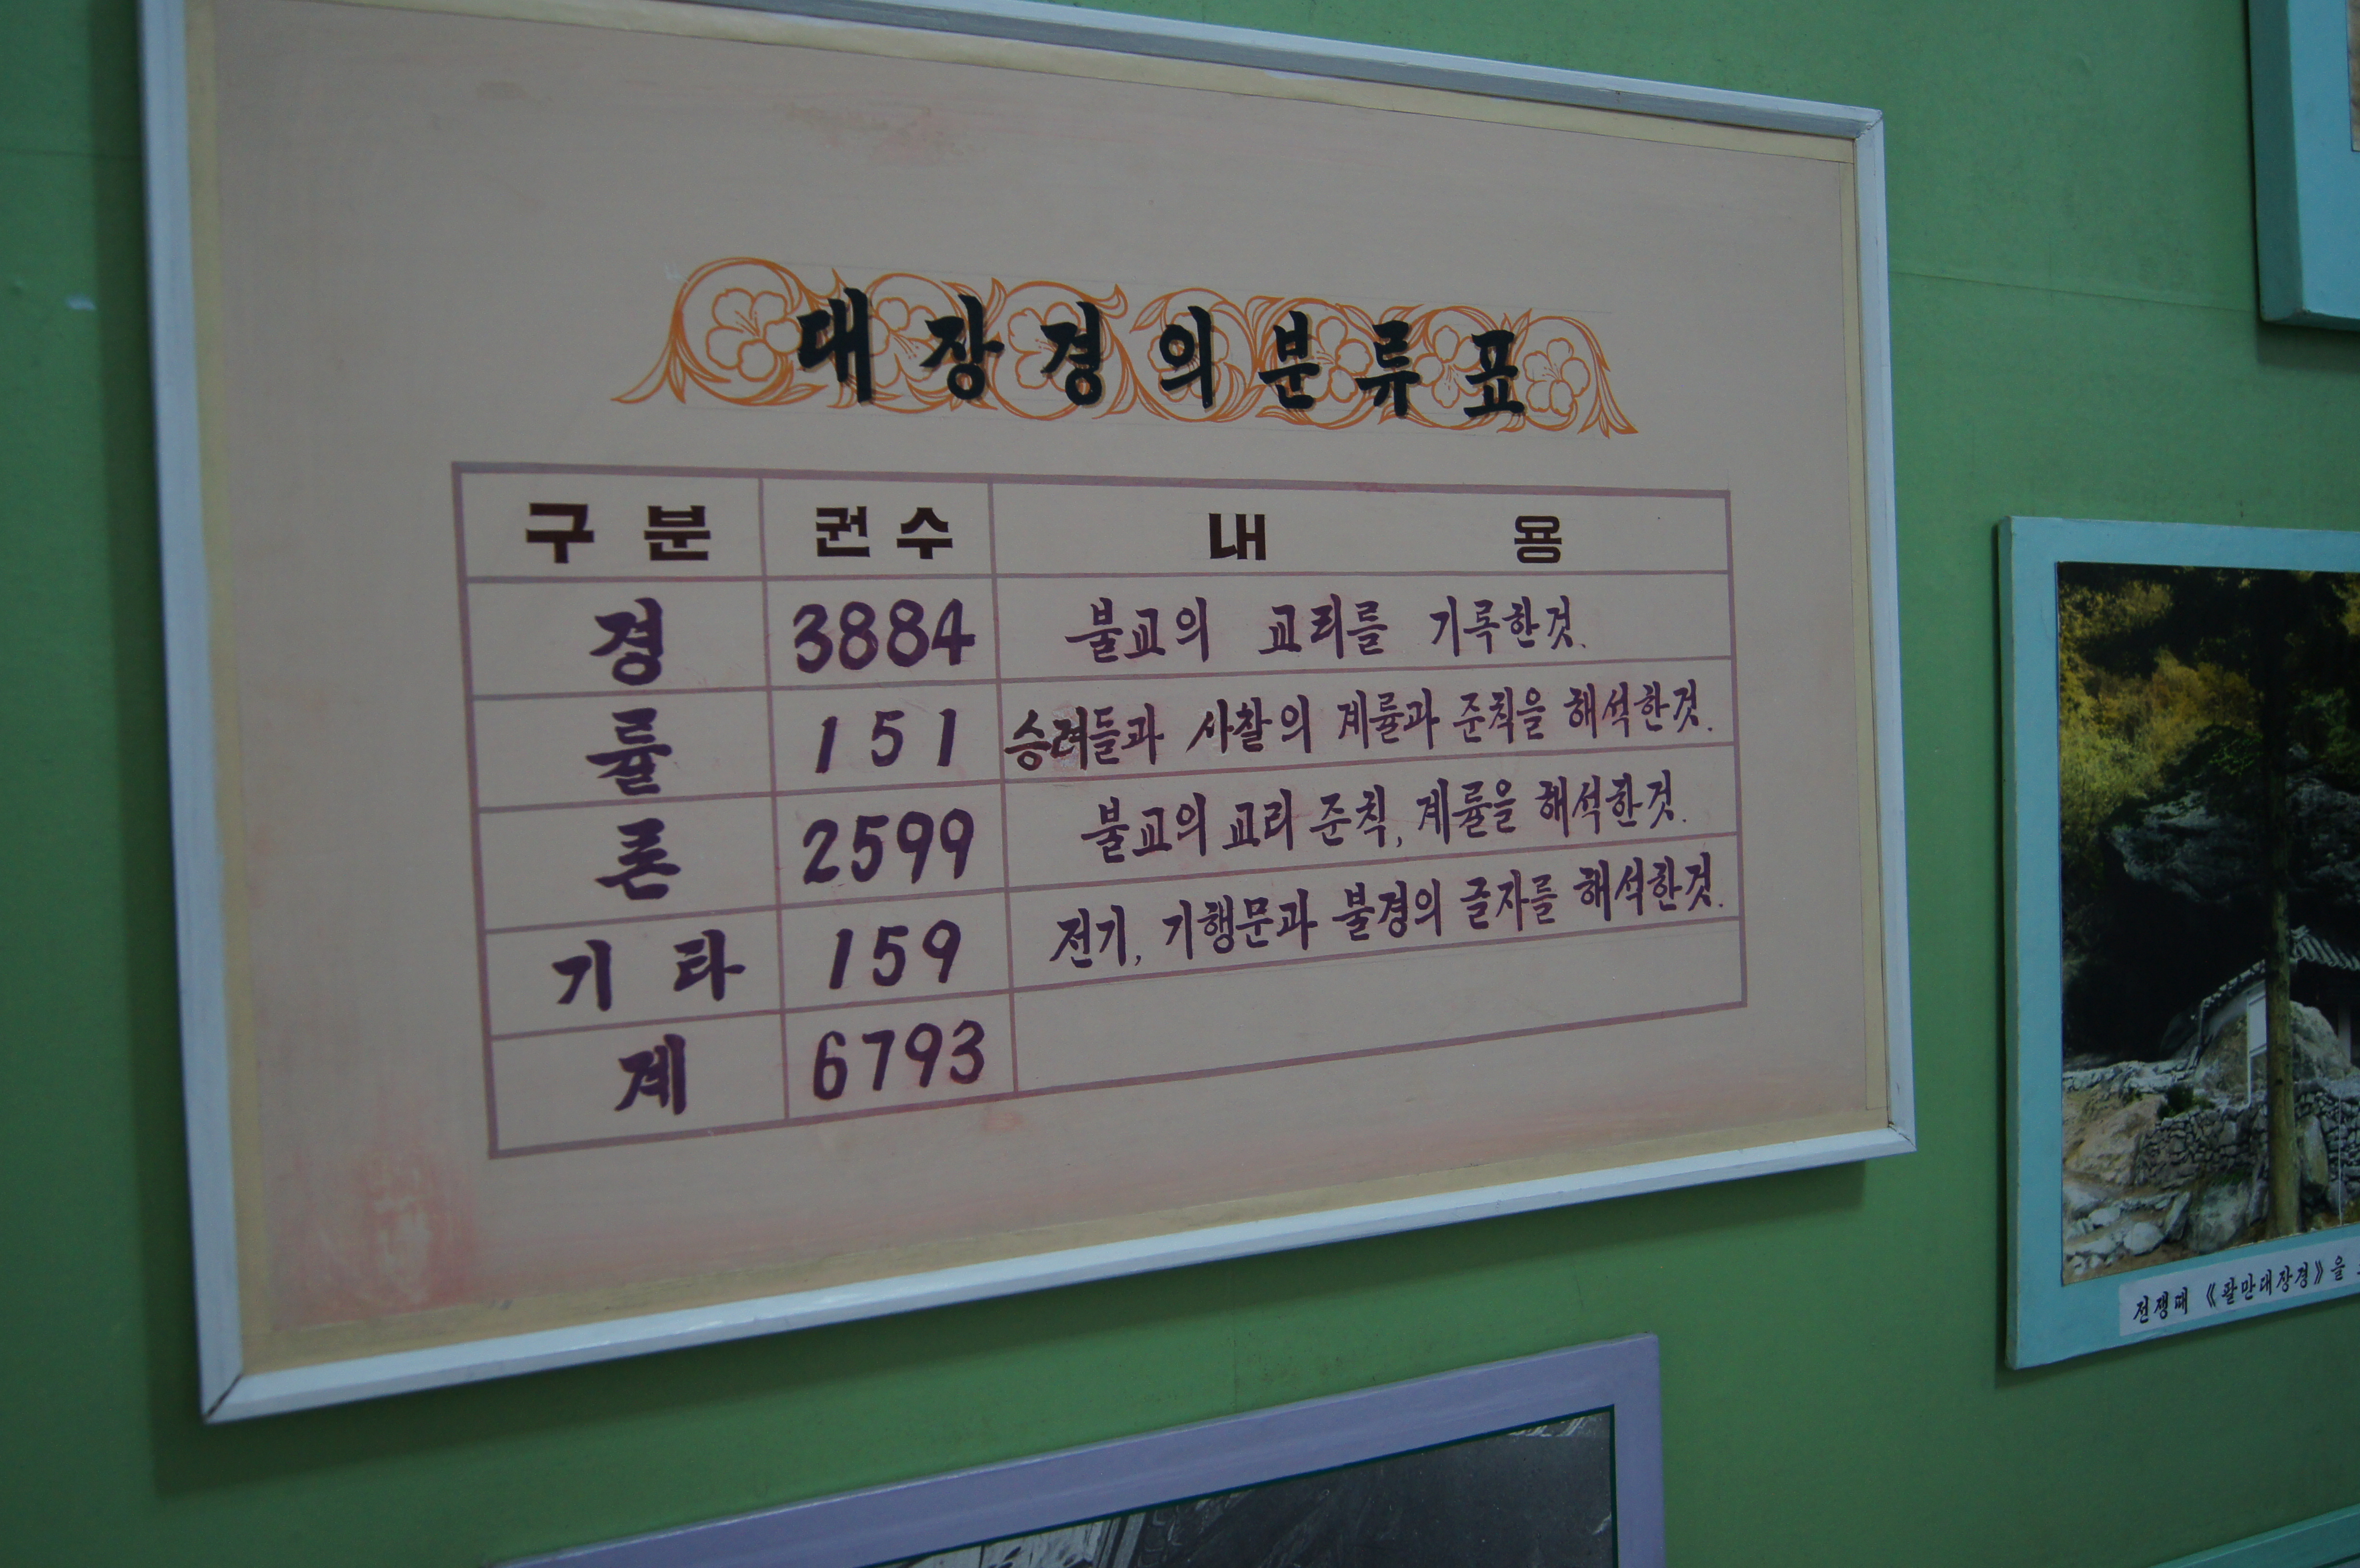 대장경의 분류표
구분 권수 내용
경 3884 불교의 교리를 기록한것.
률 151 승려들과 사찰의 계률과 준칙을 해석한것.
론 2599 불교의 교리 준칙, 계률을 해석한것.
기타 159 전기, 기행문과 불경의 글자를 해석한것.
계 6793
전쟁때 《팔만대장경》을